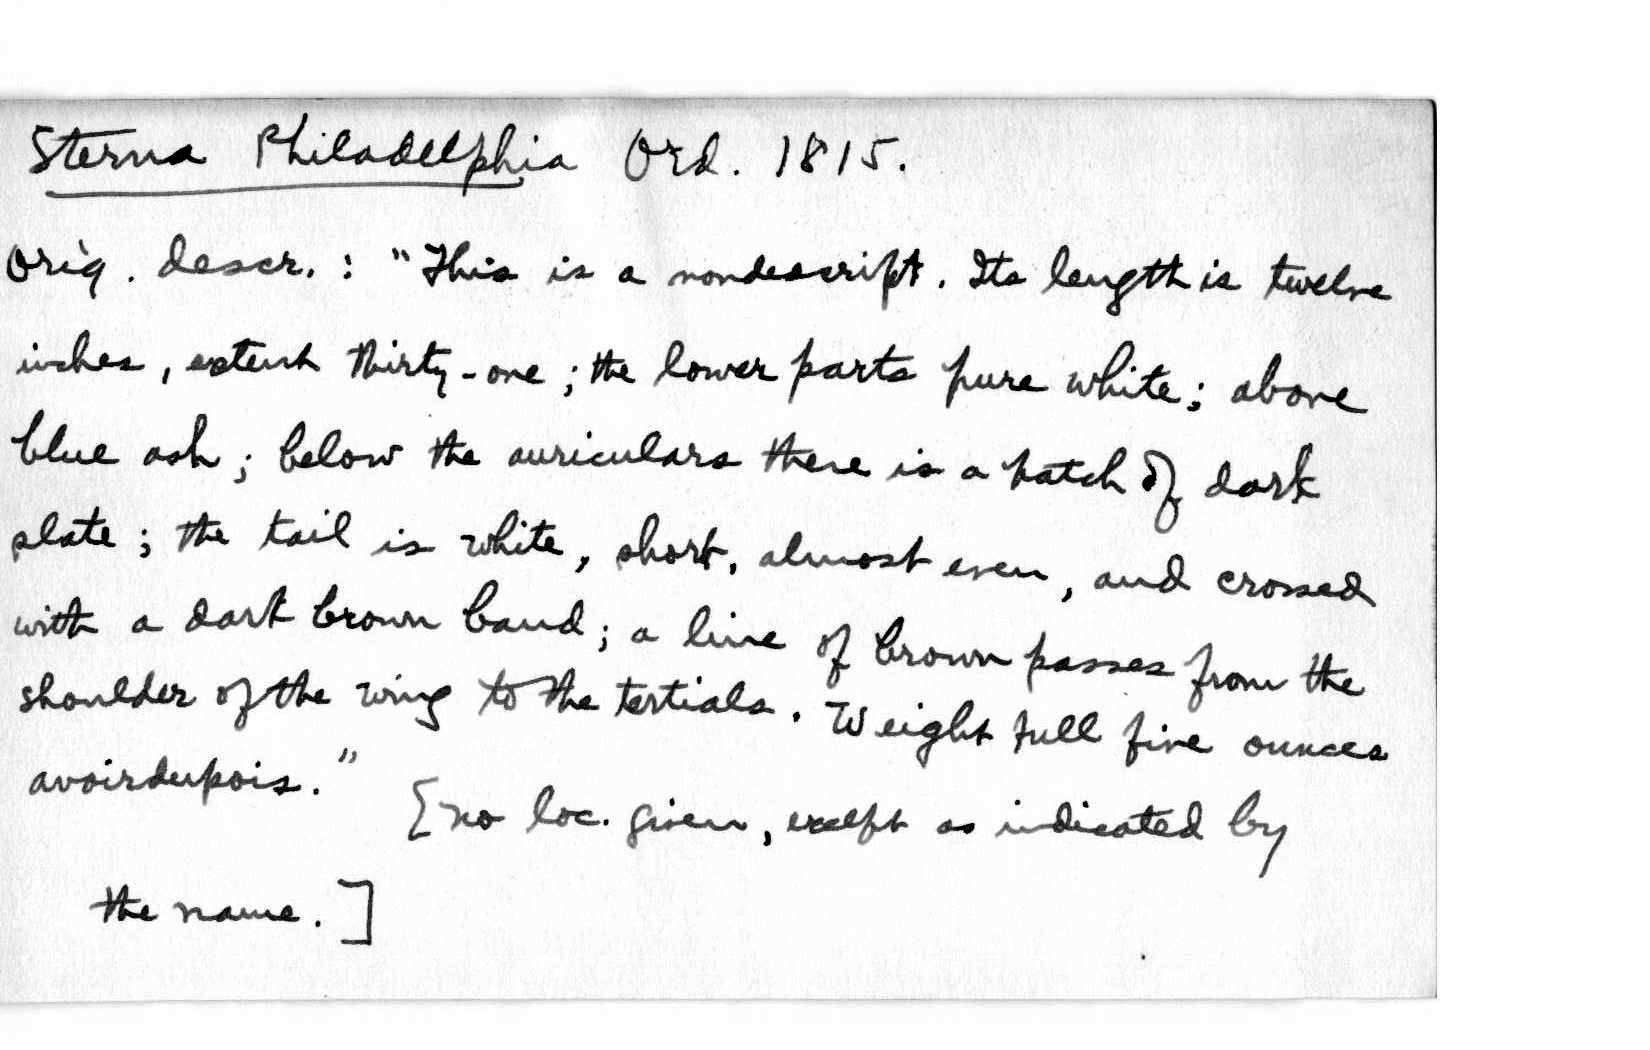 Sterna Philadelphia Ord. 1815.
Orig. descr. : "This is a nondescript. Its length is twelve
inches, extent thirty-one ; the lower parts pure white ; above
blue ash ; below the auriculars there is a patch of dark
slate ; the tail is white, short, almost even, and crossed
with a dark brown band ; a line of brown passes from the
shoulder of the wing to the tertials. Weight full five ounces
avoirdupois."
[no loc. given, except as indicated by
the name.]